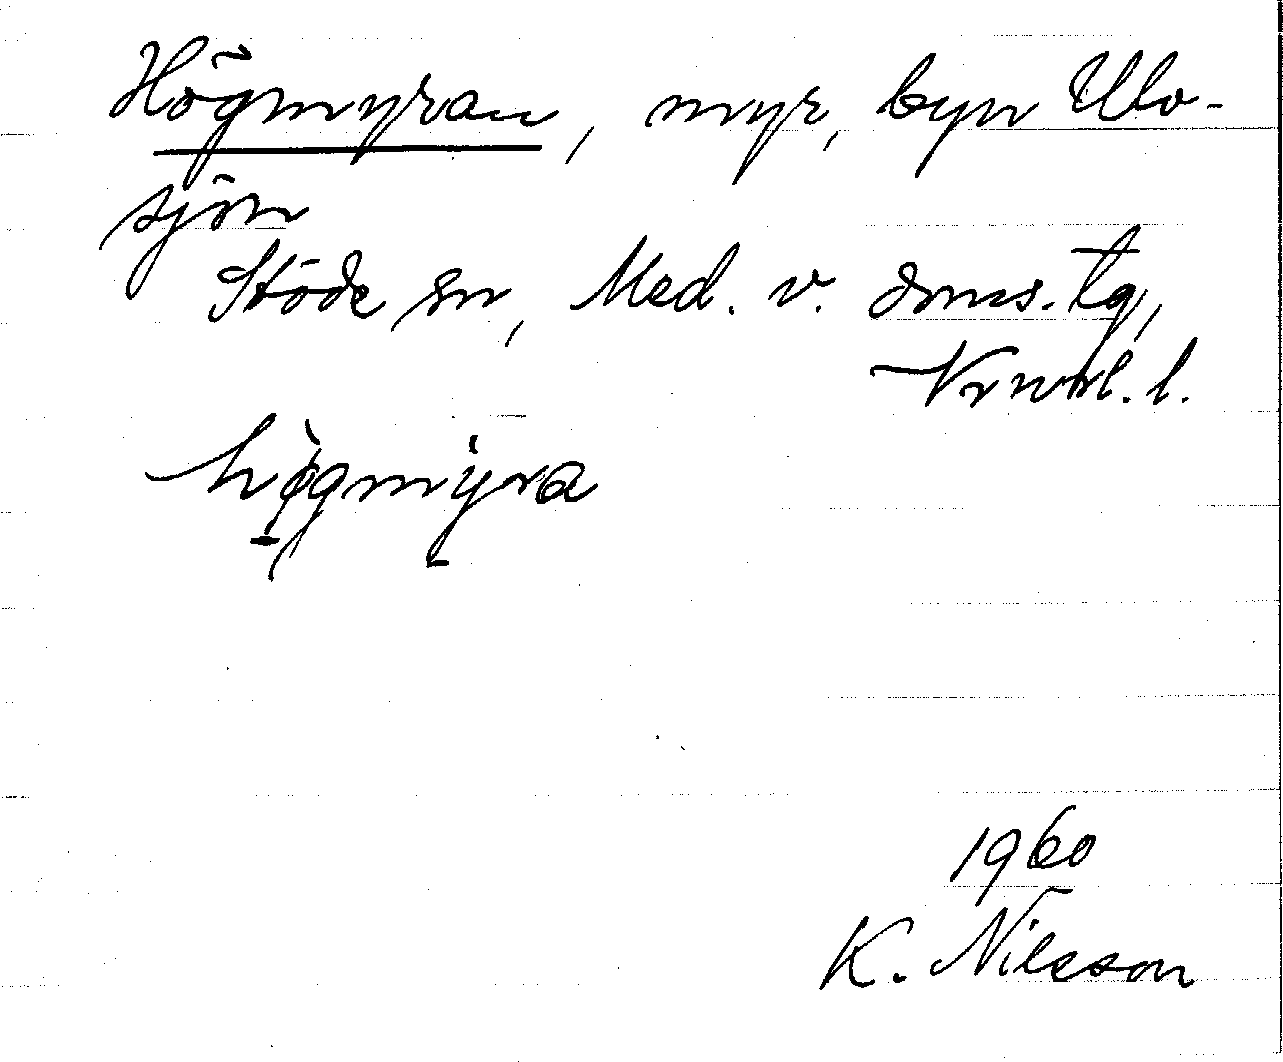 Högmyran, myr, byn Ulv-
sjön
Stöde sn, Med. v. doms. tg,
Vrnrl. l.
hø̀gmỳra
1960
K. Nilsson